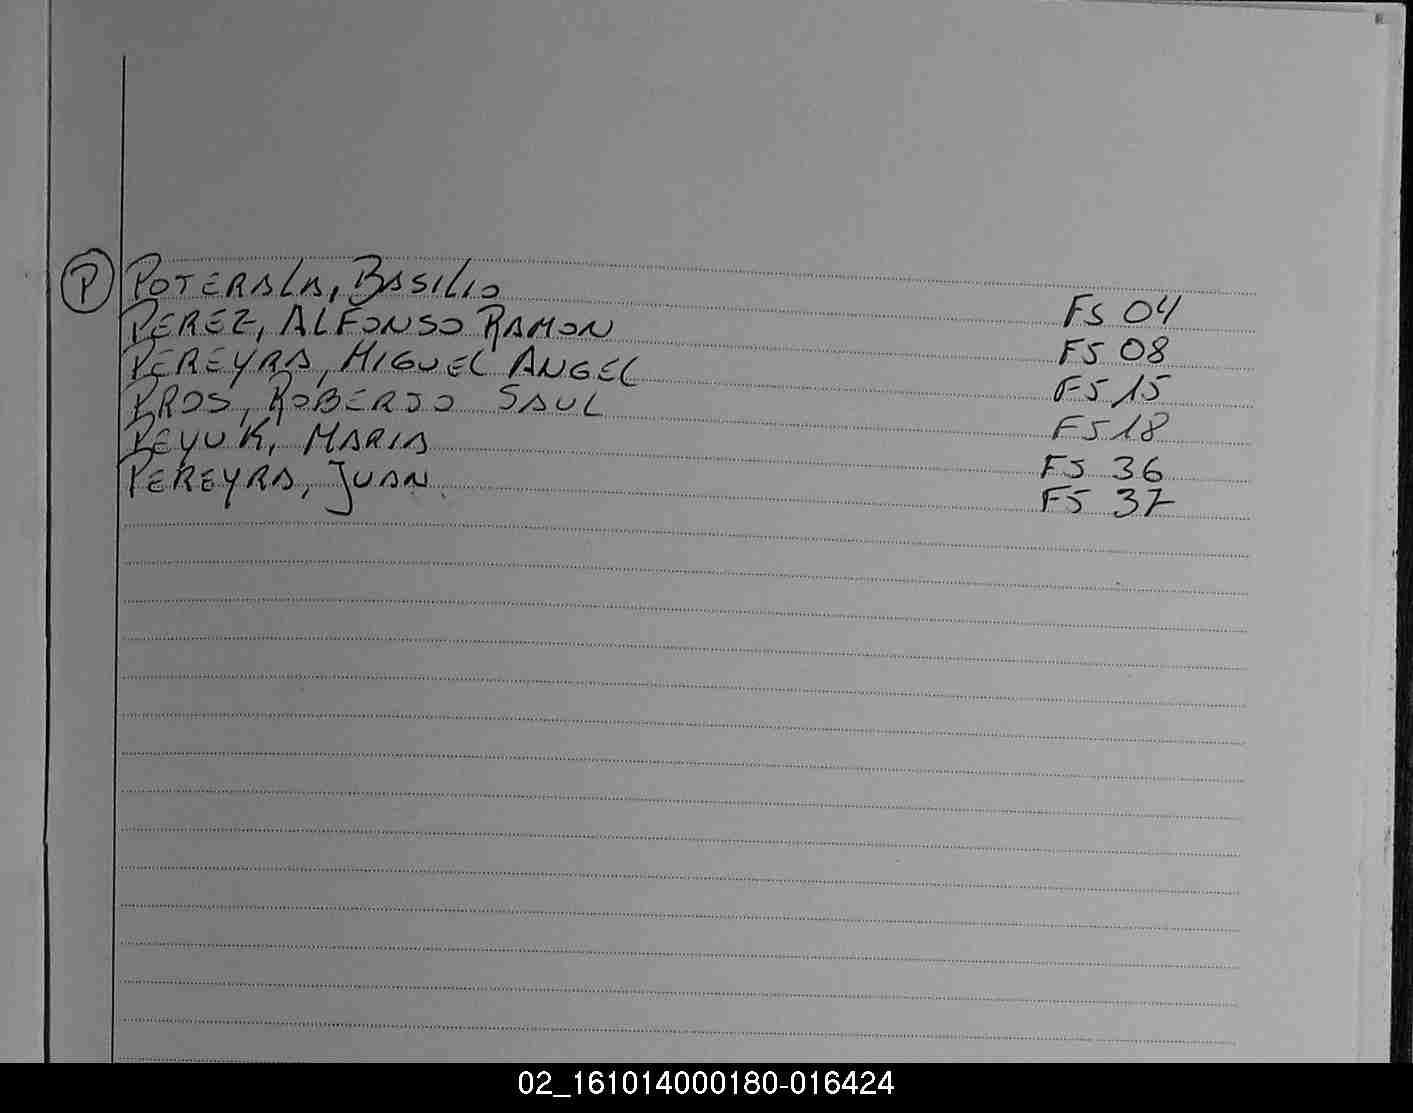 P
POTERALA, BASILIO FS 04
PEREZ, ALFONSO RAMON FS 08
PEREYRA, MIGUEL ANGEL FS 15
PROS, ROBERTO SAUL FS 18
PEYUK, MARIA FS 36
PEREYRA, JUAN FS 37
02_161014000180-016424